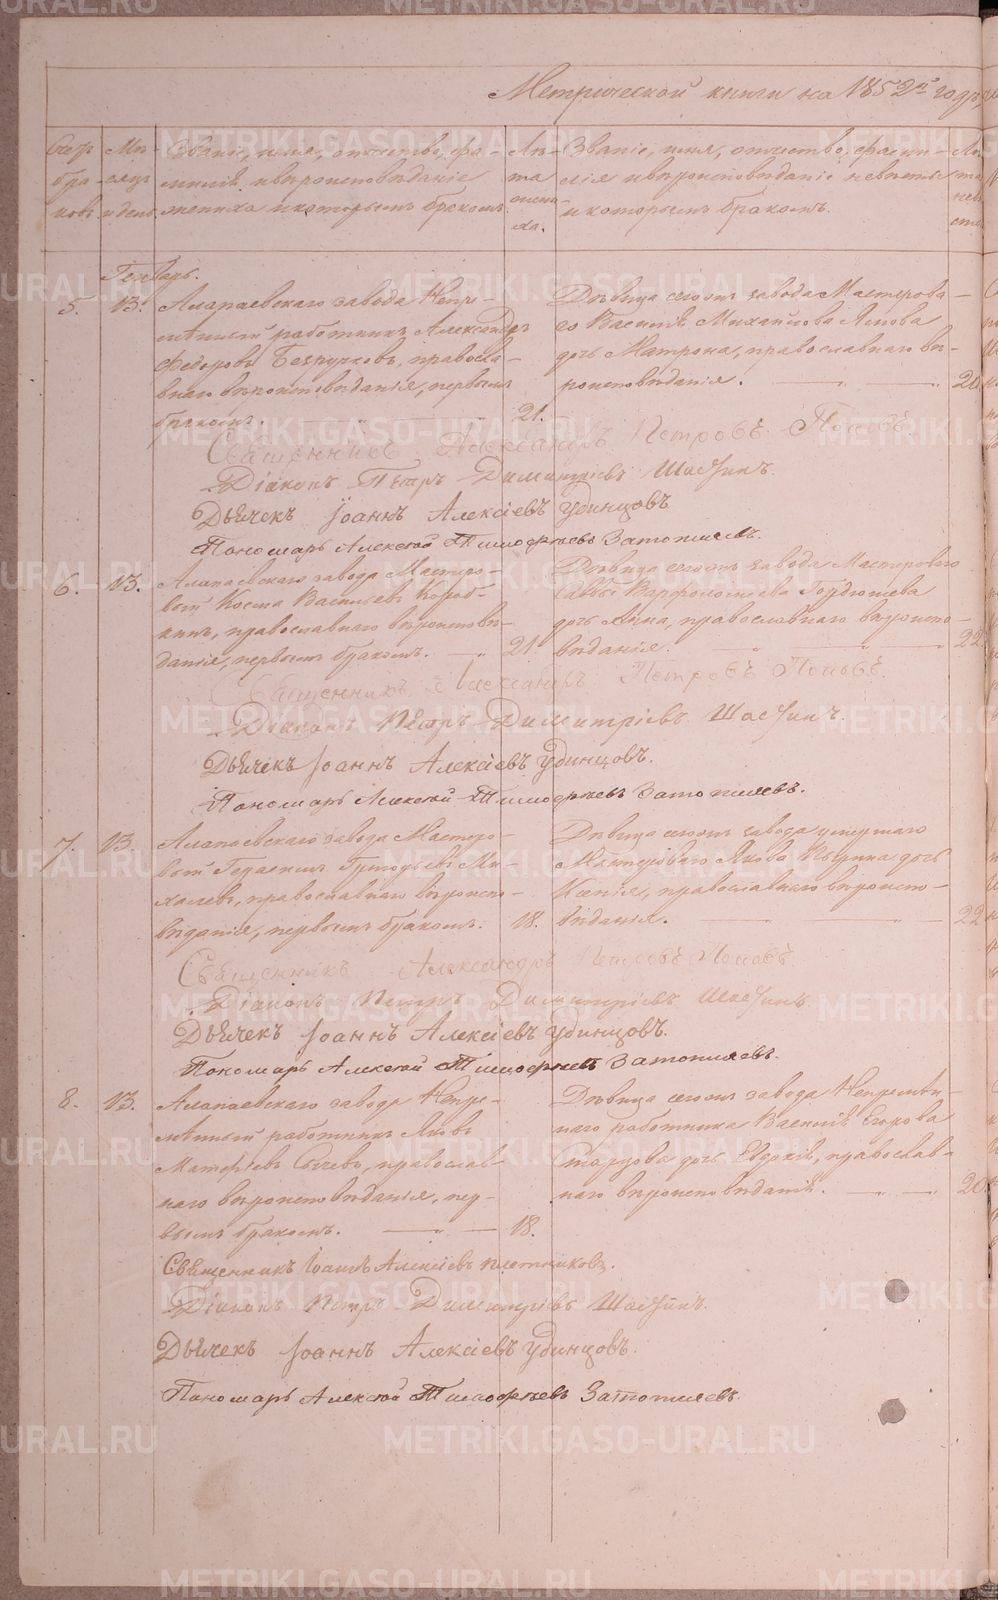 Метрической книги на 1852й годъ,
Счетъ браковъ
Мѣсяцъ и день
Званіе, имя, отчество, фамилія и вѣроисповѣданіе жениха и которымъ бракомъ
Лѣта жениха.
Званіе, имя, отчество, фамилія и вѣроисповѣданіе невѣсты и которымъ бракомъ.
Лѣта невѣсты
Генварь.
5. 13. Алапаевскаго завода Непре-
мѣнный работникъ Александръ
Федоровъ Безручковъ, правосла-
внаго вѣроисповѣданія, первымъ
бракомъ. 21.
Дѣвица сегожъ завода Мастерова-
го Василія Михайлова
дочь Матрона, православнаго вѣ-
роисповѣданія. 20
Священникъ Александръ Петровъ Поповъ
Діаконъ Петръ Димитріевъ Шастинъ.
Дьячекъ Іоаннъ Алексіевъ Удинцовъ
Пономарь Алексѣй Тимофѣевъ Затопляевъ.
6. 13. Алапаевскаго завода Мастеро-
вый Косма Васильевъ Короб-
кинъ, православнаго вѣроисповѣ-
данія, первымъ бракомъ. 21.
Дѣвица сегожъ завода Мастероваго
Саввы Варфоломеева
дочь Анна, православнаго вѣроиспо-
вѣданія. 22
Священникъ Александръ Петровъ Поповъ.
Діаконъ Петръ Димитріевъ Шастинъ.
Дьячекъ Іоаннъ Алексіевъ Удинцовъ.
Пономарь Алексѣй Тимофѣевъ Затопляевъ.
7. 13. Алапаевскаго завода Мастеро-
вый Герасимъ Григорьевъ Ми-
халевъ, православнаго вѣроиспо-
вѣданія, первымъ бракомъ. 18.
Дѣвица сегожъ завода умершаго
Мастероваго Якова дочь
Ксенія, православнаго вѣроиспо-
вѣданія. 22
Священникъ Александръ Петровъ Поповъ
Діаконъ Петръ Димитріевъ Шастинъ.
Дьячекъ Іоаннъ Алексіевъ Удинцовъ.
Пономарь Алексѣй Тимофѣевъ Затопляевъ.
8. 13. Алапаевскаго завода Непре-
мѣнный работникъ Яковъ
Матфѣевъ Сычевъ, православ-
наго вѣроисповѣданія, пер-
вымъ бракомъ. 18.
Дѣвица сегожъ завода Непремѣн-
наго работника Василія Егорова
дочь Евдокія, православ-
наго вѣроисповѣданія. 20
Священникъ Іоаннъ Алексіевъ Плотниковъ.
Діаконъ Петръ Димитріевъ Шастинъ.
Дьячекъ Іоаннъ Алексіевъ Удинцовъ.
Пономарь Алексѣй Тимофѣевъ Затопляевъ.
METRIKI.GASO-URAL.RU